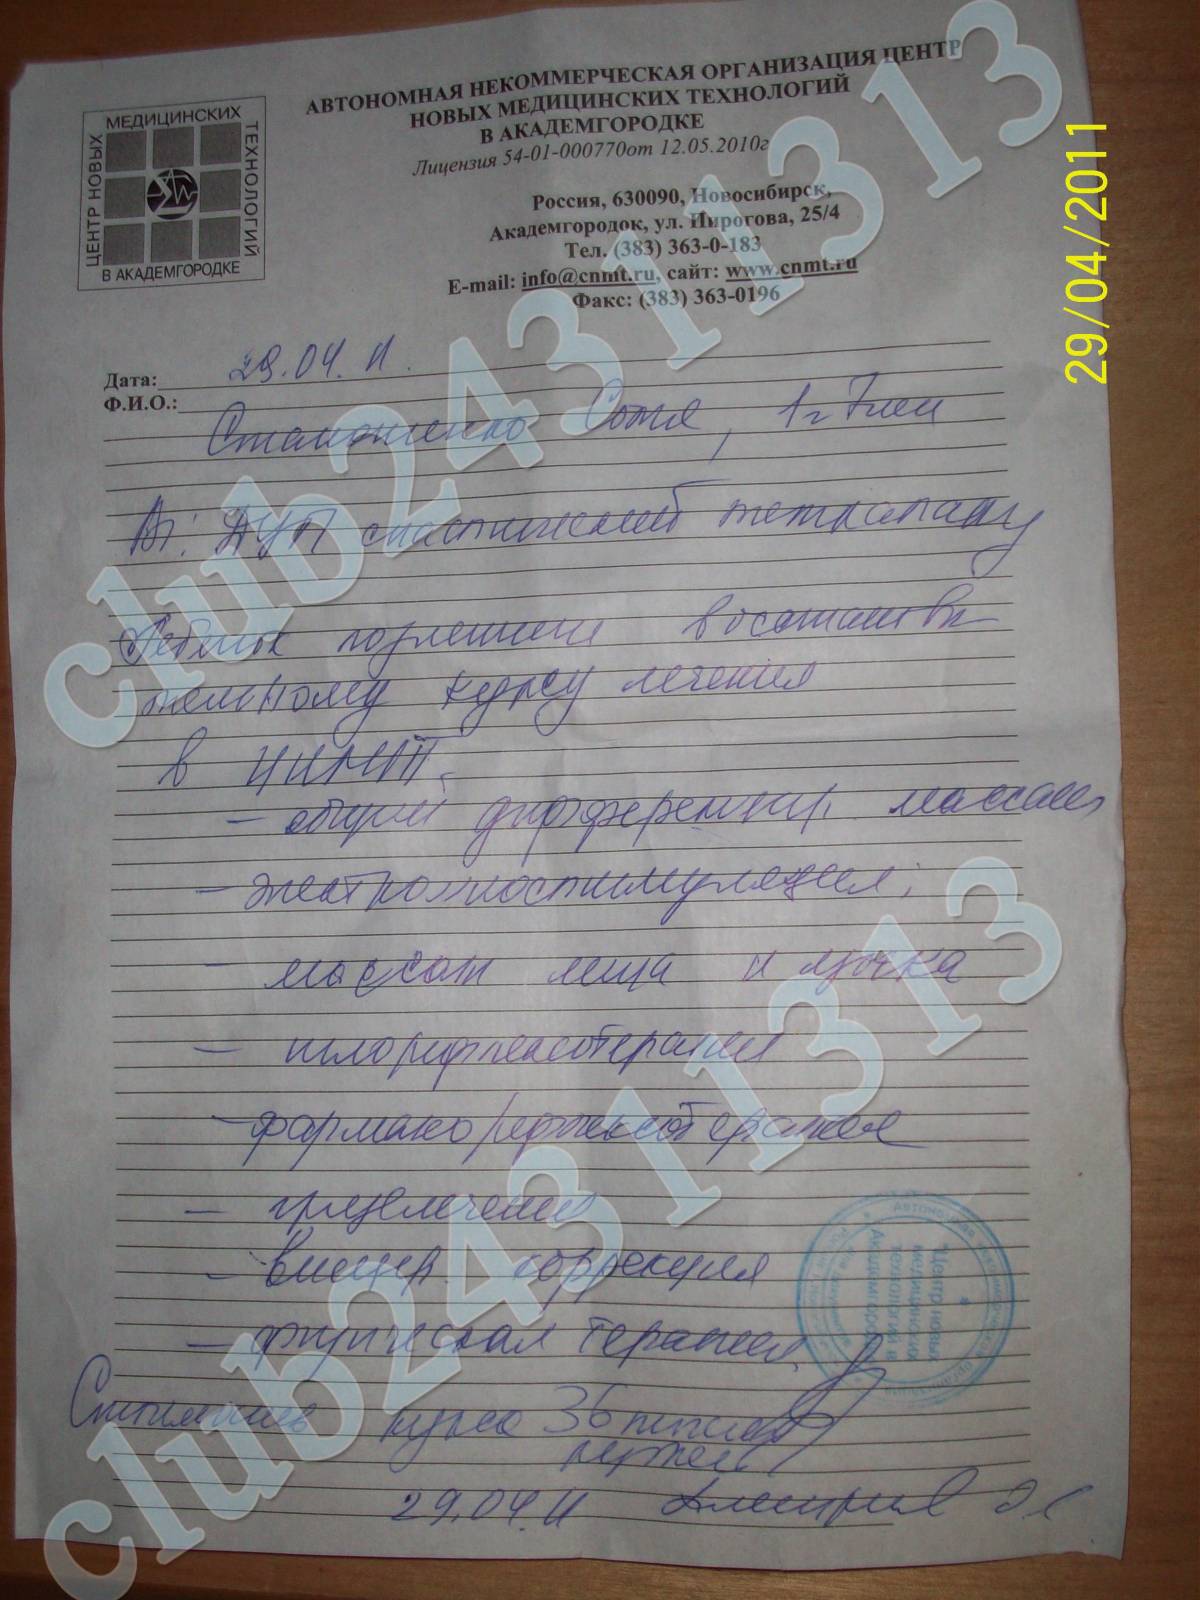 МЕДИЦИНСКИХ
ЦЕНТР НОВЫХ
ТЕХНОЛОГИЙ
В АКАДЕМГОРОДКЕ
АВТОНОМНАЯ НЕКОММЕРЧЕСКАЯ ОРГАНИЗАЦИЯ ЦЕНТР
НОВЫХ МЕДИЦИНСКИХ ТЕХНОЛОГИЙ
В АКАДЕМГОРОДКЕ
Лицензия 54-01-000770от 12.05.2010г
Россия, 630090, Новосибирск,
Академгородок, ул. Пирогова, 25/4
Тел. (383) 363-0-183
E-mail: info@cnmt.ru, сайт: www.cnmt.ru
Факс: (383) 363-0196
29/04/2011
Дата: 29.04.11.
Ф.И.О.:
Соня, 1 г 7 мес
ДЦП спастический тетрапарез
Ребенок восстанови-
тельному курсу лечения
в ЦНМТ.
- общий дифференцир. массаж
- массаж лица и язычка
- иглорефлексотерапия
- фармакорефлексотерапия
- грязелечение
- висцер. коррекция
- физическая терапия
Стоимость курса 36 тысяч
рублей
29.04.11
club24311313
club24311313
club24311313